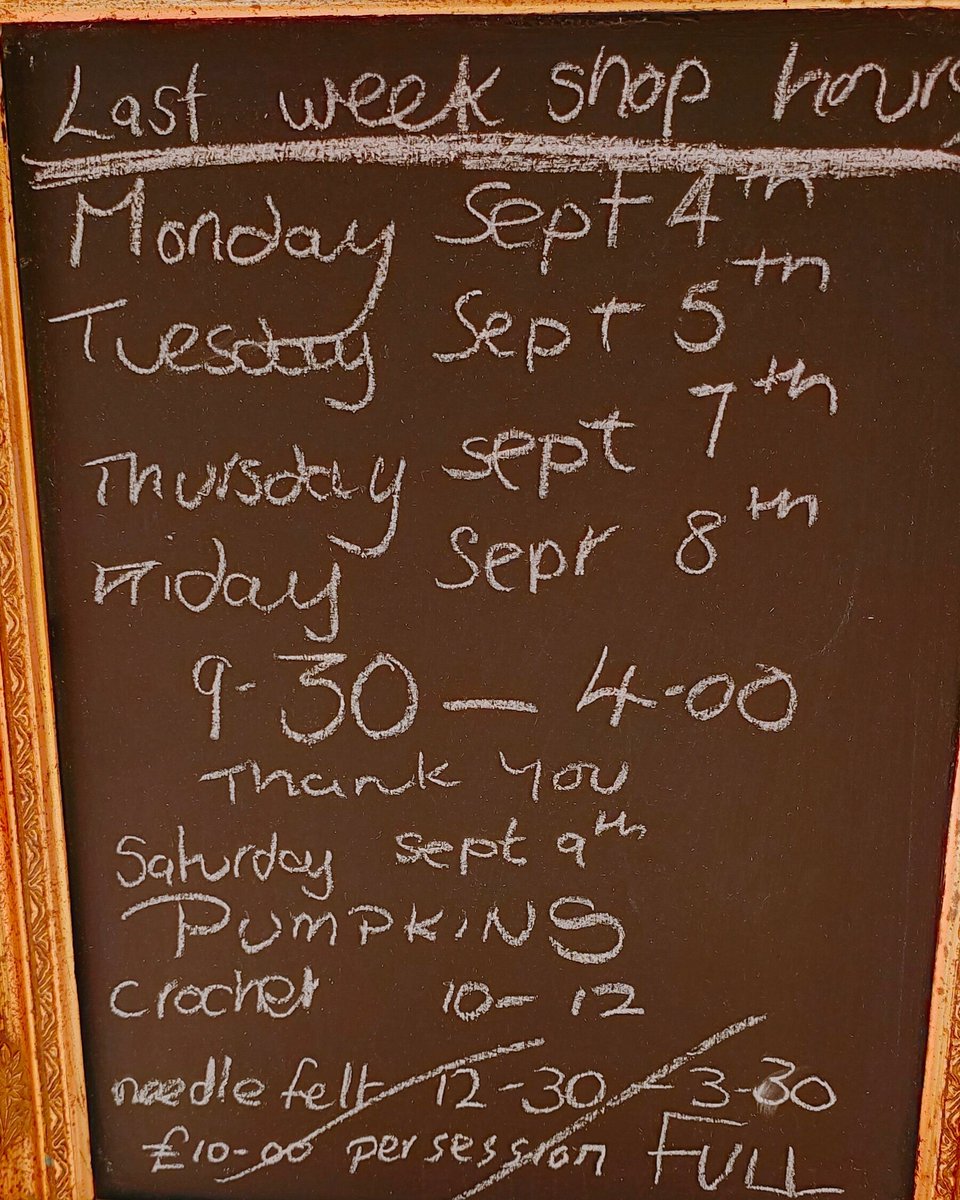 Last week shop hours
Monday Sept 4th
Tuesday Sept 5th
Thursday sept 7th
Friday Sept 8th
9-30 — 4-00
Thank you
Saturday sept 9th
PUMPKINS
crochet 10-12
needle felt 12-30 - 3-30
£10-00 per session FULL